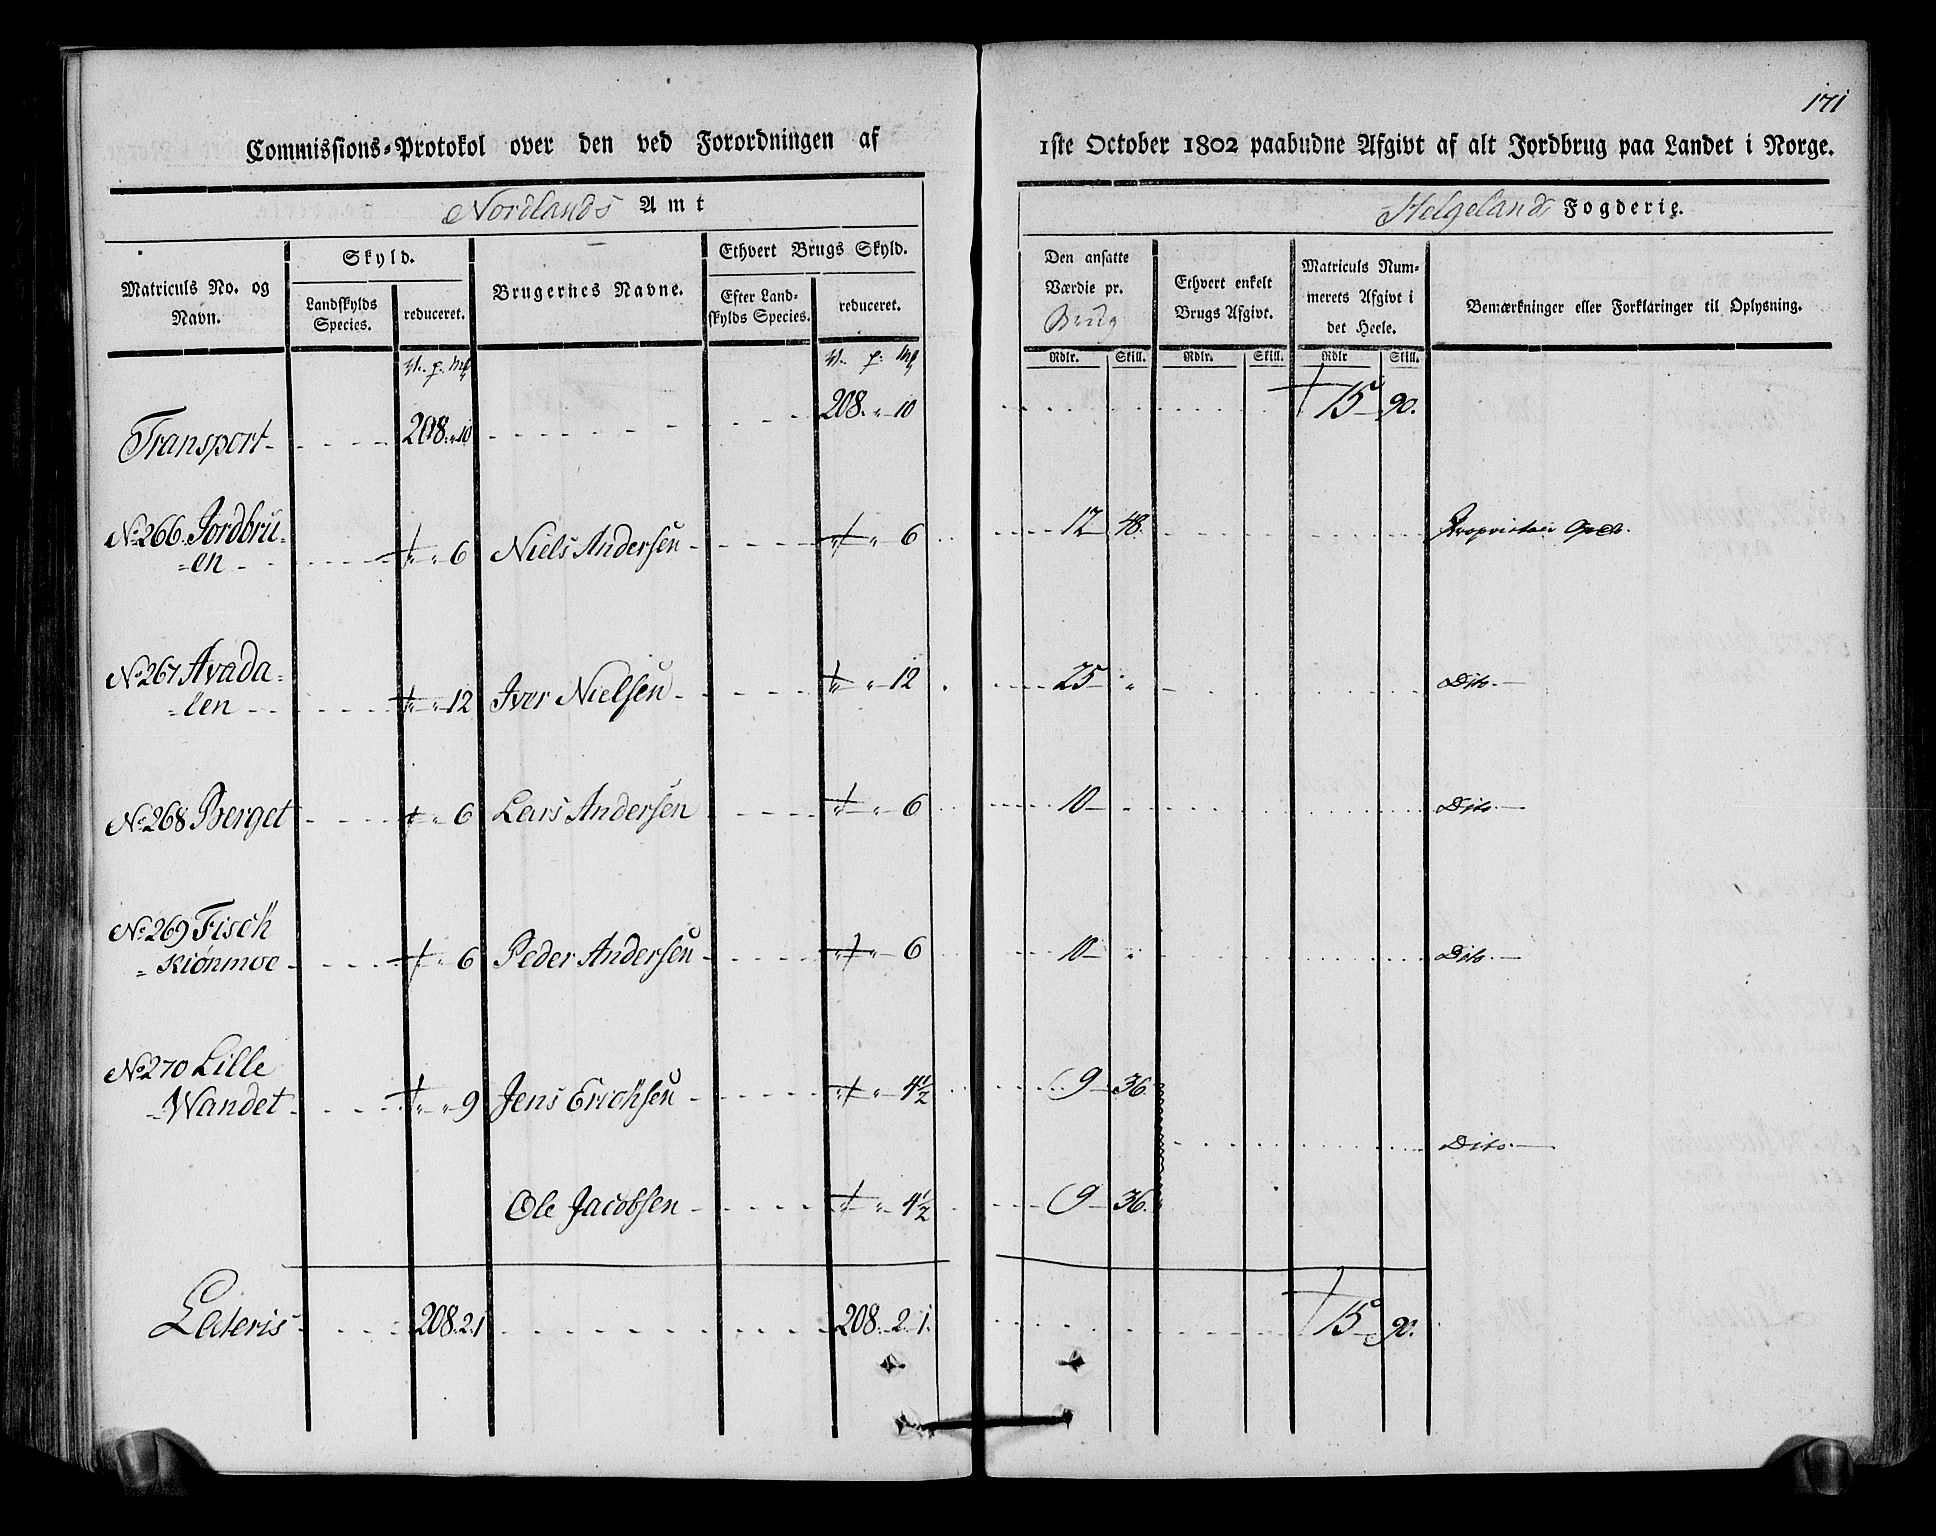 171
Commissions-Protokol over den ved Forordningen af 1ste October 1802 paabudne Afgivt af alt Jordbrug paa Landet i Norge.
Nordlands Amt Helgeland Fogderie.
Matriculs No. og Navn.
Skyld.
Landskylds Species.
reduceret.
Brugernes Navne.
Ethvert Brugs Skyld.
Efter Landskylds Species.
reduceret.
Den ansatte Værdie pr. Brug
Ethvert enkelt Brugs Afgivt.
Matriculs Nummerets Afgivt i det Heele.
Bemærkninger eller Forklaringer til Oplysning.
Rdlr. Skill. Rdlr. Skill. Rdlr Skill.
Transport 208. " 10 208. " 10 15 90.
No. 266. Jordbru-
-en " 6 Niels Andersen " 6 12 48. Proprietair
No. 267 Avada-
-len " 12 Iver Nielsen " 12 25 " Dito.
No. 268 Berget " 6 Lars Andersen " 6 10 Dito
No. 269 Fisch
-kiønmoe 6 Peder Andersen " 6 10 " Dito.
No. 270 Lille
-Wandet " 9 Jens Erichsen " 4½ 9 36.
Dito.
Ole Jacobsen " 4½ 9 36.
Lateris 208. 2. 1 208. 2. 1. 15 90.